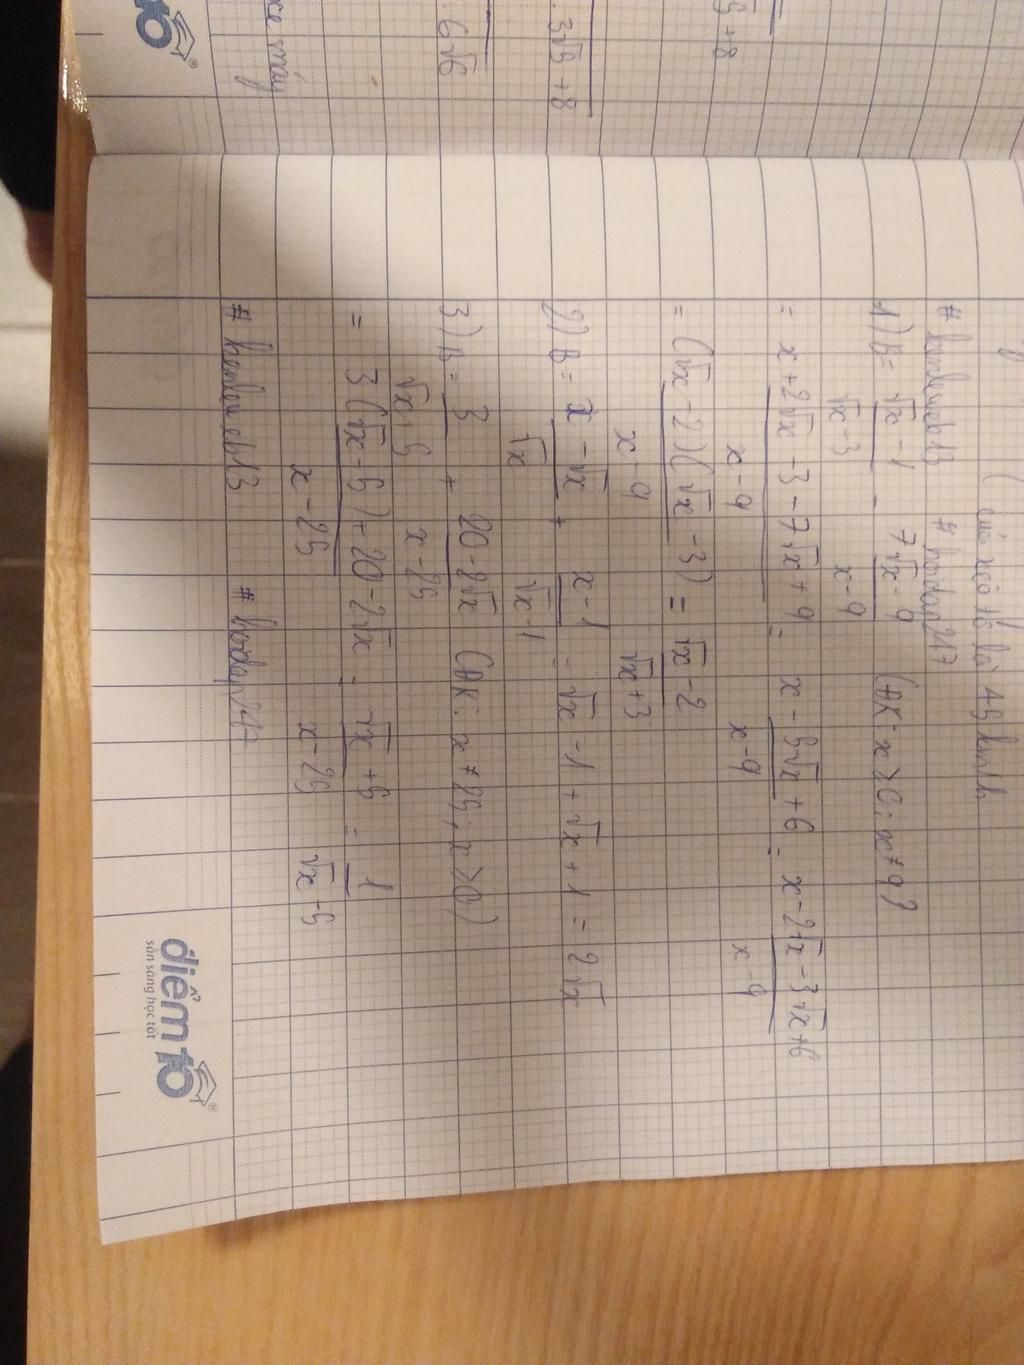 3√6 + 8
6√6
xe máy
là 45 km/h
1) B = (√x - 1)/(√x - 3) - (7√x - 9)/(x - 9) (ĐK: x > 0; x ≠ 9)
= (x + 2√x - 3 - 7√x + 9)/(x - 9) = (x - 5√x + 6)/(x - 9) = (x - 2√x - 3√x + 6)/(x - 9)
= (√x - 2)(√x - 3)/(x - 9) = (√x - 2)/(√x + 3)
2) B = (x - √x)/√x + (x - 1)/(√x - 1) = √x - 1 + √x + 1 = 2√x
3) B = 3/(√x + 5) + (20 - 2√x)/(x - 25) (ĐK: x ≠ 25; x > 0)
= (3(√x - 5) + 20 - 2√x)/(x - 25) = (√x + 5)/(x - 25) = 1/(√x - 5)
# hoidap247
điểm 10
sẵn sàng học tốt